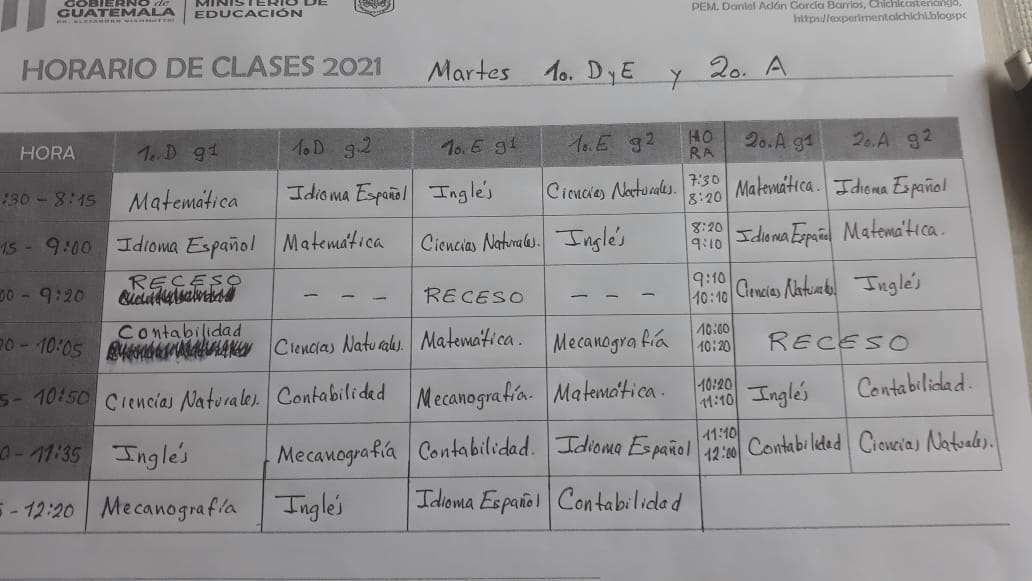 GOBIERNO de MINISTERIO DE
GUATEMALA EDUCACIÓN
DR. ALEJANDRO GIAMMATTEI
PEM. Daniel Adán García Barrios, Chichicastenango,
https://experimentalchichi.blogspo
HORARIO DE CLASES 2021 Martes 1o. D y E y 2o. A
HORA 1o.D g1 1oD g.2 1o.E g1 1o.E g2 HO RA 2o.A g1 2o.A g2
:30 - 8:15 Matemática Idioma Español Inglés Ciencias Naturales. 7:30 8:20 Matemática. Idioma Español
15 - 9:00 Idioma Español Matemática Ciencias Naturales. Inglés 8:20 9:10 Idioma Español Matemática.
00 - 9:20 RECESO - - - RECESO - - - 9:10 10:10 Ciencias Naturales Inglés
20 - 10:05 Contabilidad Ciencias Naturales. Matemática. Mecanografía 10:00 10:20 RECESO
5 - 10:50 Ciencias Naturales. Contabilidad Mecanografía. Matemática. 10:20 11:10 Inglés Contabilidad.
0 - 11:35 Inglés Mecanografía Contabilidad. Idioma Español 11:10 12:00 Contabilidad Ciencias Natuales.
5 - 12:20 Mecanografía Inglés Idioma Español Contabilidad